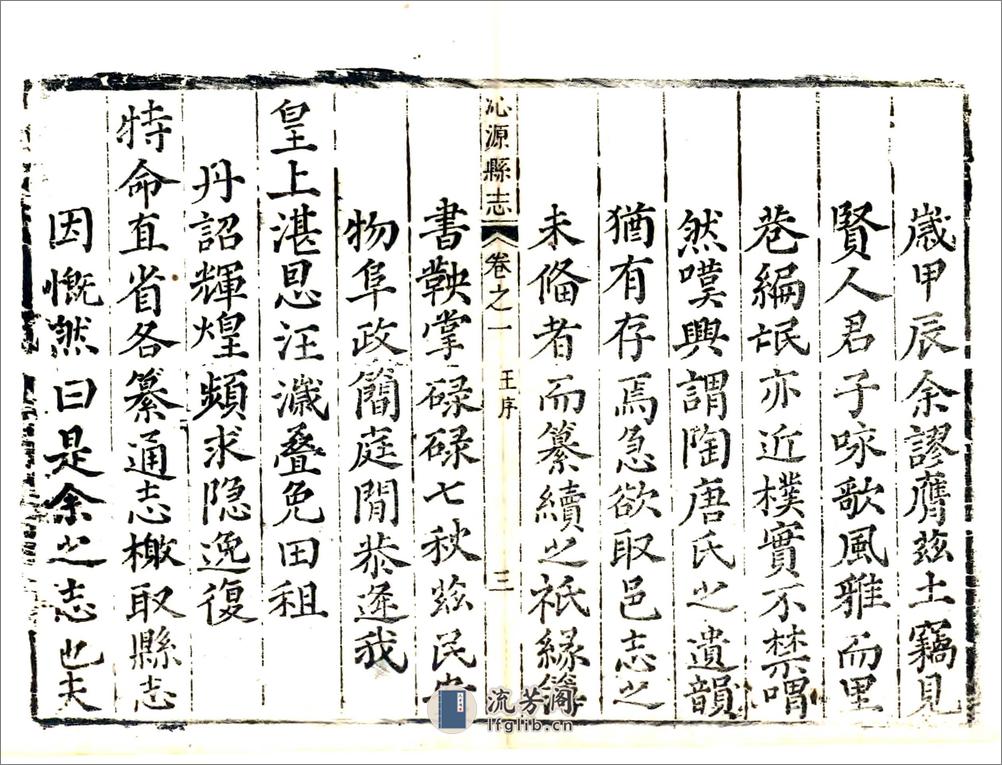 歲甲辰余謬膺茲土竊見
賢人君子咏歌風雅而里
巷編氓亦近樸實不禁喟
然嘆興謂陶唐氏之遺韻
猶有存焉急欲取邑志之
未偹者而纂續之祇緣簿
沁源縣志 卷之一 王序 三
書鞅掌碌碌七秋茲民安
物阜政簡庭閒恭逢我
皇上湛恩汪濊叠免田租
丹詔輝煌頻求隐逸復
特命直省各纂通志檄取縣志
因慨然曰是余之志也夫
流芳阁
lfglib.cn